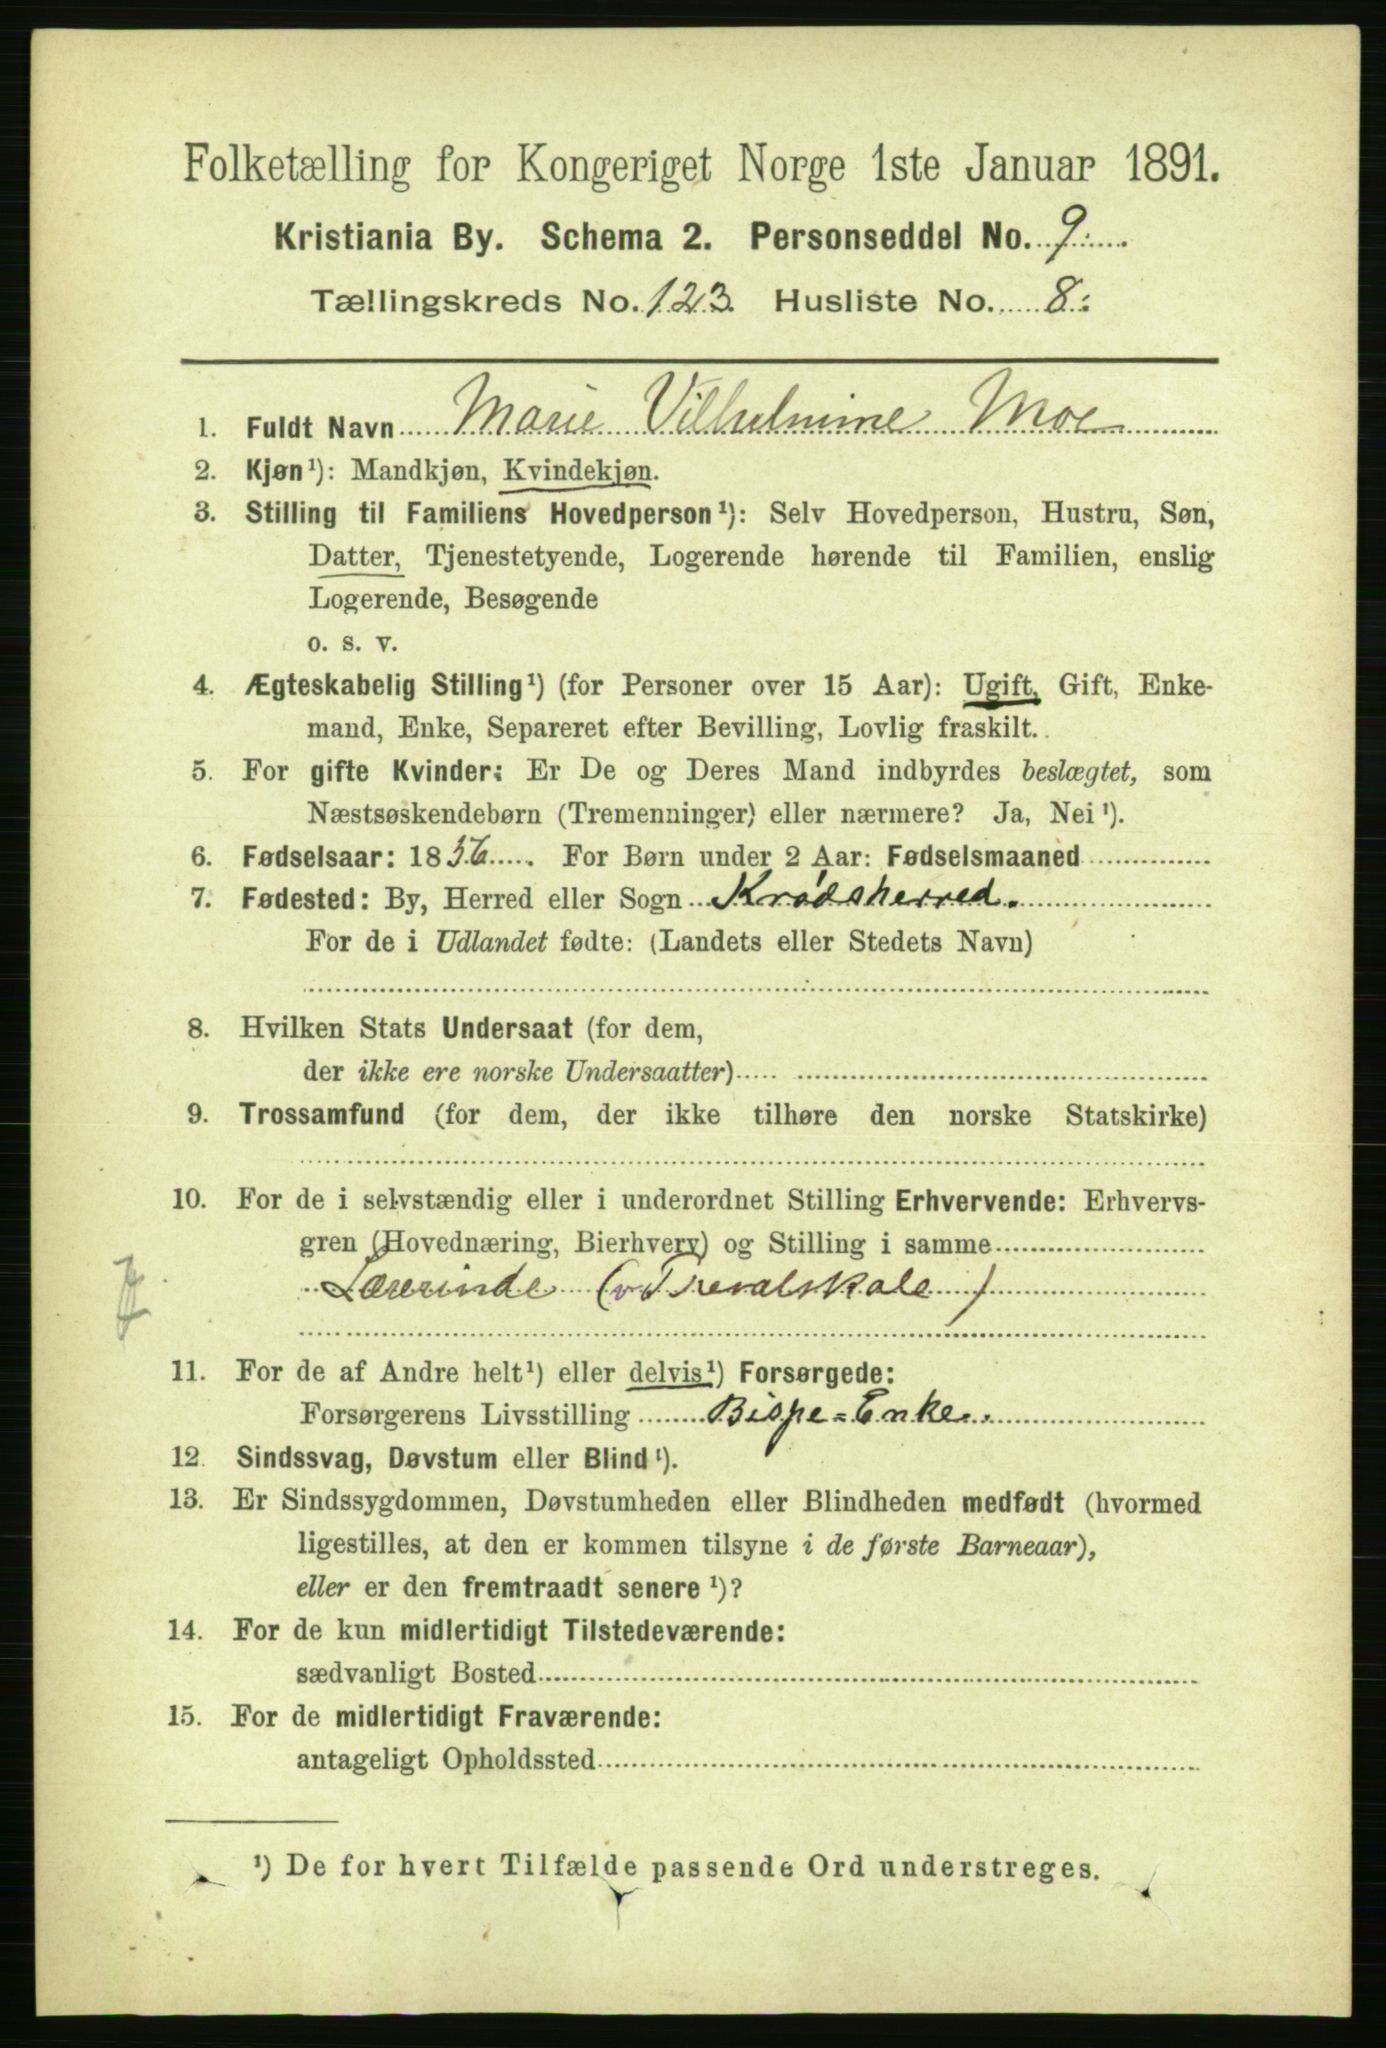 Folketælling for Kongeriget Norge 1ste Januar 1891.
Kristiania By. Schema 2. Personseddel No. 9
Tællingskreds No. 123 Husliste No. 8
1. Fuldt Navn Marie Vilhelmine Moe
2. Kjøn¹): Mandkjøn, Kvindekjøn.
3. Stilling til Familiens Hovedperson¹): Selv Hovedperson, Hustru, Søn,
Datter, Tjenestetyende, Logerende hørende til Familien, enslig
Logerende, Besøgende
o. s. v.
4. Ægteskabelig Stilling¹) (for Personer over 15 Aar): Ugift, Gift, Enke-
mand, Enke, Separeret efter Bevilling, Lovlig fraskilt.
5. For gifte Kvinder: Er De og Deres Mand indbyrdes beslægtet, som
Næstsøskendebørn (Tremenninger) eller nærmere? Ja, Nei¹).
6. Fødselsaar: 1856. For Børn under 2 Aar: Fødselsmaaned
7. Fødested: By, Herred eller Sogn Krødsherred.
For de i Udlandet fødte: (Landets eller Stedets Navn)
8. Hvilken Stats Undersaat (for dem,
der ikke ere norske Undersaatter)
9. Trossamfund (for dem, der ikke tilhøre den norske Statskirke)
10. For de i selvstændig eller i underordnet Stilling Erhvervende: Erhvervs-
gren (Hovednæring, Bierhverv) og Stilling i samme
Lærerinde
11. For de af Andre helt¹) eller delvis¹) Forsørgede:
Forsørgerens Livsstilling Bispe-Enke.
12. Sindssvag, Døvstum eller Blind¹).
13. Er Sindssygdommen, Døvstumheden eller Blindheden medfødt (hvormed
ligestilles, at den er kommen tilsyne i de første Barneaar),
eller er den fremtraadt senere¹)?
14. For de kun midlertidigt Tilstedeværende:
sædvanligt Bosted
15. For de midlertidigt Fraværende:
antageligt Opholdssted
¹) De for hvert Tilfælde passende Ord understreges.